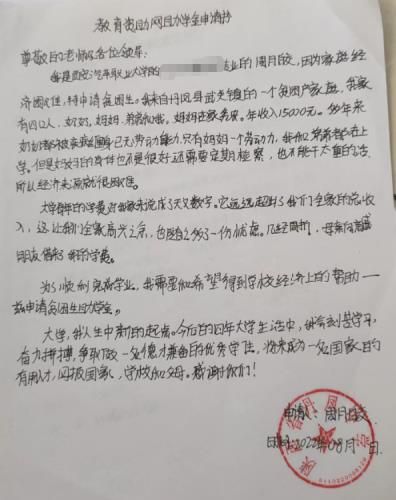 教育资助网助学金申请书
尊敬的老师及各位领导:
我是西安汽车职业大学的 专业的周月皎,因为家庭经
济困难,特申请贫困生。我来自丹凤县武关镇的一个贫困户家庭,我家
有四口人,奶奶,妈妈,弟弟和我。妈妈在家务农。年收入15000元。多年来
奶奶都被疾病缠身已无劳动能力,只有妈妈一个劳动力,我和弟弟都在上
学。但是妈妈的身体也不是很好还需要定期检察,也不能干太重的活
所以经济来源就很困难。
大学每年的学费对我家来说成了天文数字。它远远超出了我们全家的总收
入,这让我们全家高兴之余,也随之多了一份忧虑。几经周折,母亲向
朋友借钱 的学费。
为了顺利完成学业,我需要和希望得到学校经济上的帮助——
兹申请贫困生助学金。
大学,我人生中新的起点。今后的四年大学生活中,我会刻苦学习,
奋力拼搏,争取做一名德才兼备的优秀学生,将来成为一名国家的
有用人才,回报国家,学校和父母。感谢你们!
申请人:周月皎
日期:2022年08月 日